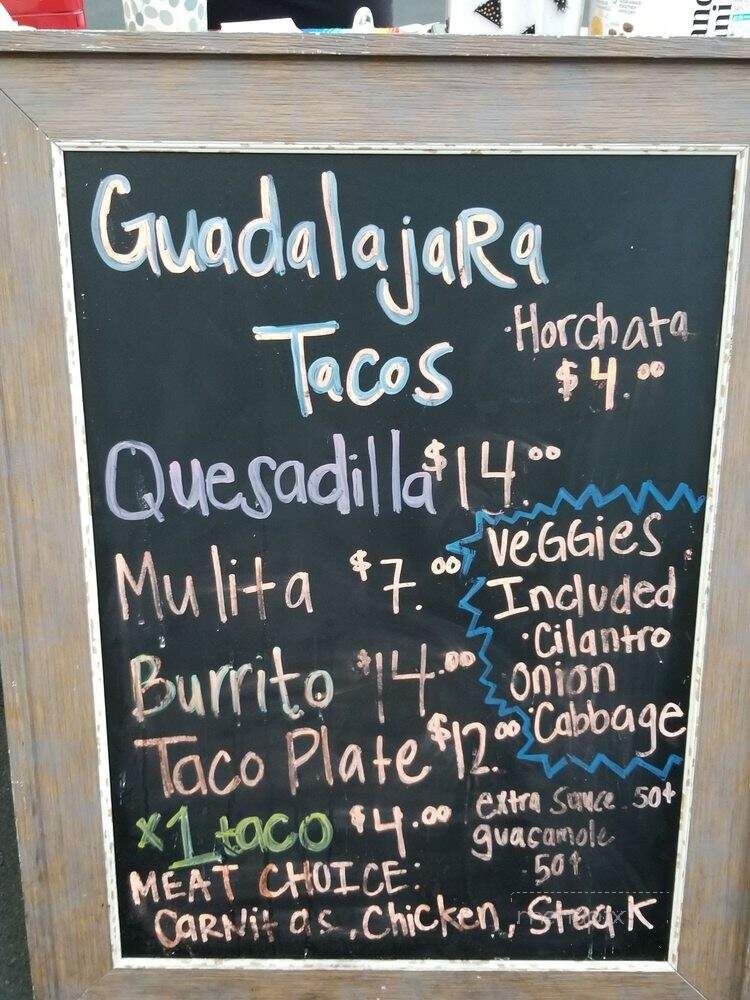 Guadalajara
Tacos
·Horchata
$4.00
Quesadilla $14.00
Mulita $7.00
Burrito $14.00
Taco Plate $12.00
x1 taco $4.00
veggies
Included
·Cilantro
onion
·Cabbage
extra sauce 50¢
guacamole
50¢
MEAT CHOICE:
CARNitas, Chicken, Steak